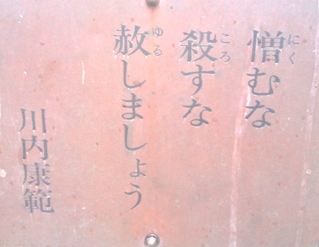 憎むな
殺すな
赦しましょう
川内康範